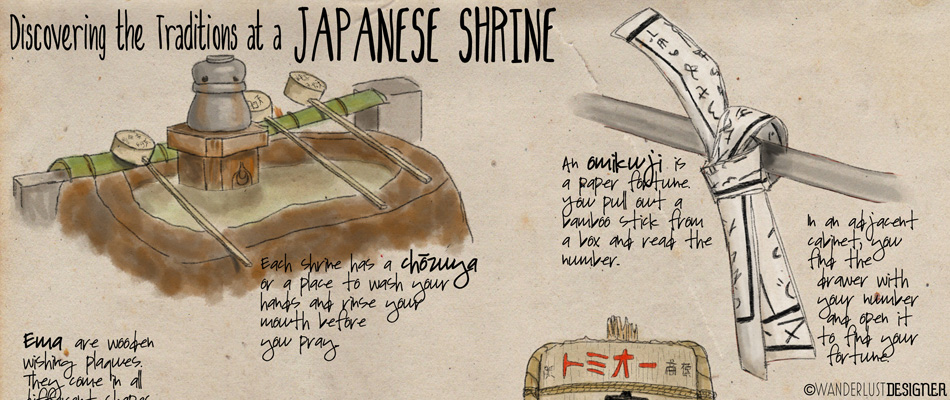 Discovering the Traditions at a JAPANESE SHRINE
An omikuji is
a paper fortune.
You pull out a
bamboo stick from
a box and read the
number.
In an adjacent
cabinet, you
find the
drawer with
your number
and open it
to find your
fortune.
Each shrine has a chōzuya
or a place to wash your
hands and rinse your
mouth before
you pray.
Ema are wooden
wishing plaques.
They come in all
different shapes
トミオー
©WANDERLUSTDESIGNER